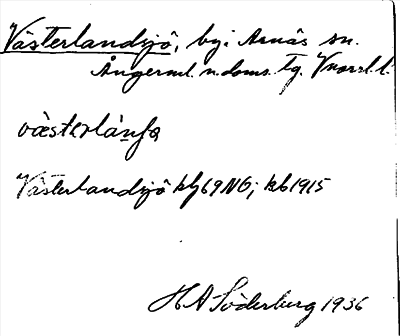 Västerlandsjö, by i Arnäs sn.
Ångerml. n. doms. tg. Vnorrl. l.
væsterlánʃø
Västerlandsjö kfg 69NO; kb 1915
H A Söderberg 1936